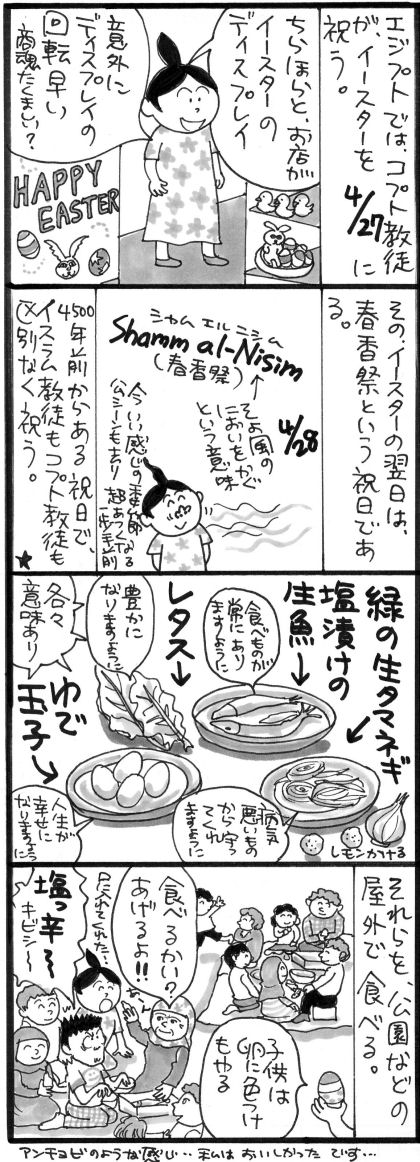 エジプトでは、コプト教徒
が、イースターを4/27に
祝う。
ちらほらと、お店が
イースターの
ディスプレイ
意外に
ディスプレイの
回転早い
商魂たくましい？
HAPPY
EASTER
その、イースターの翌日は、
春香祭という祝日であ
る。
4/28
シャム エル ニシム
Shamm al-Nisim
（春香祭）
そよ風の
においをかぐ
という意味
今いい感じの季節
ハムシーンも去り
超あつくなる
一歩手前
4500年前からある祝日で、
イスラム教徒もコプト教徒も
区別なく祝う。
★
緑の生タマネギ
塩漬けの
生魚
レタス
ゆで
玉子
食べものが
常にあり
ますように
豊かに
なりますように
各々
意味あり
病気
悪いもの
から守って
くれ
ますように
人生が
幸せに
なりますように
レモンかける
それらを、公園などの
屋外で食べる。
子供は
卵に色つけ
もやる
食べるかい？
あげるよ！！
くれてくれた…
塩っ辛〜
キビシ〜
アンチョビのような感じ…私はおいしかったです…